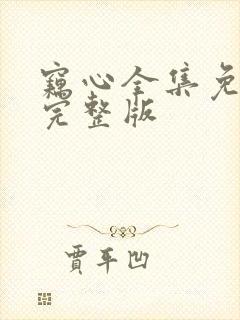 窃心全集免
完整版
贾平凹